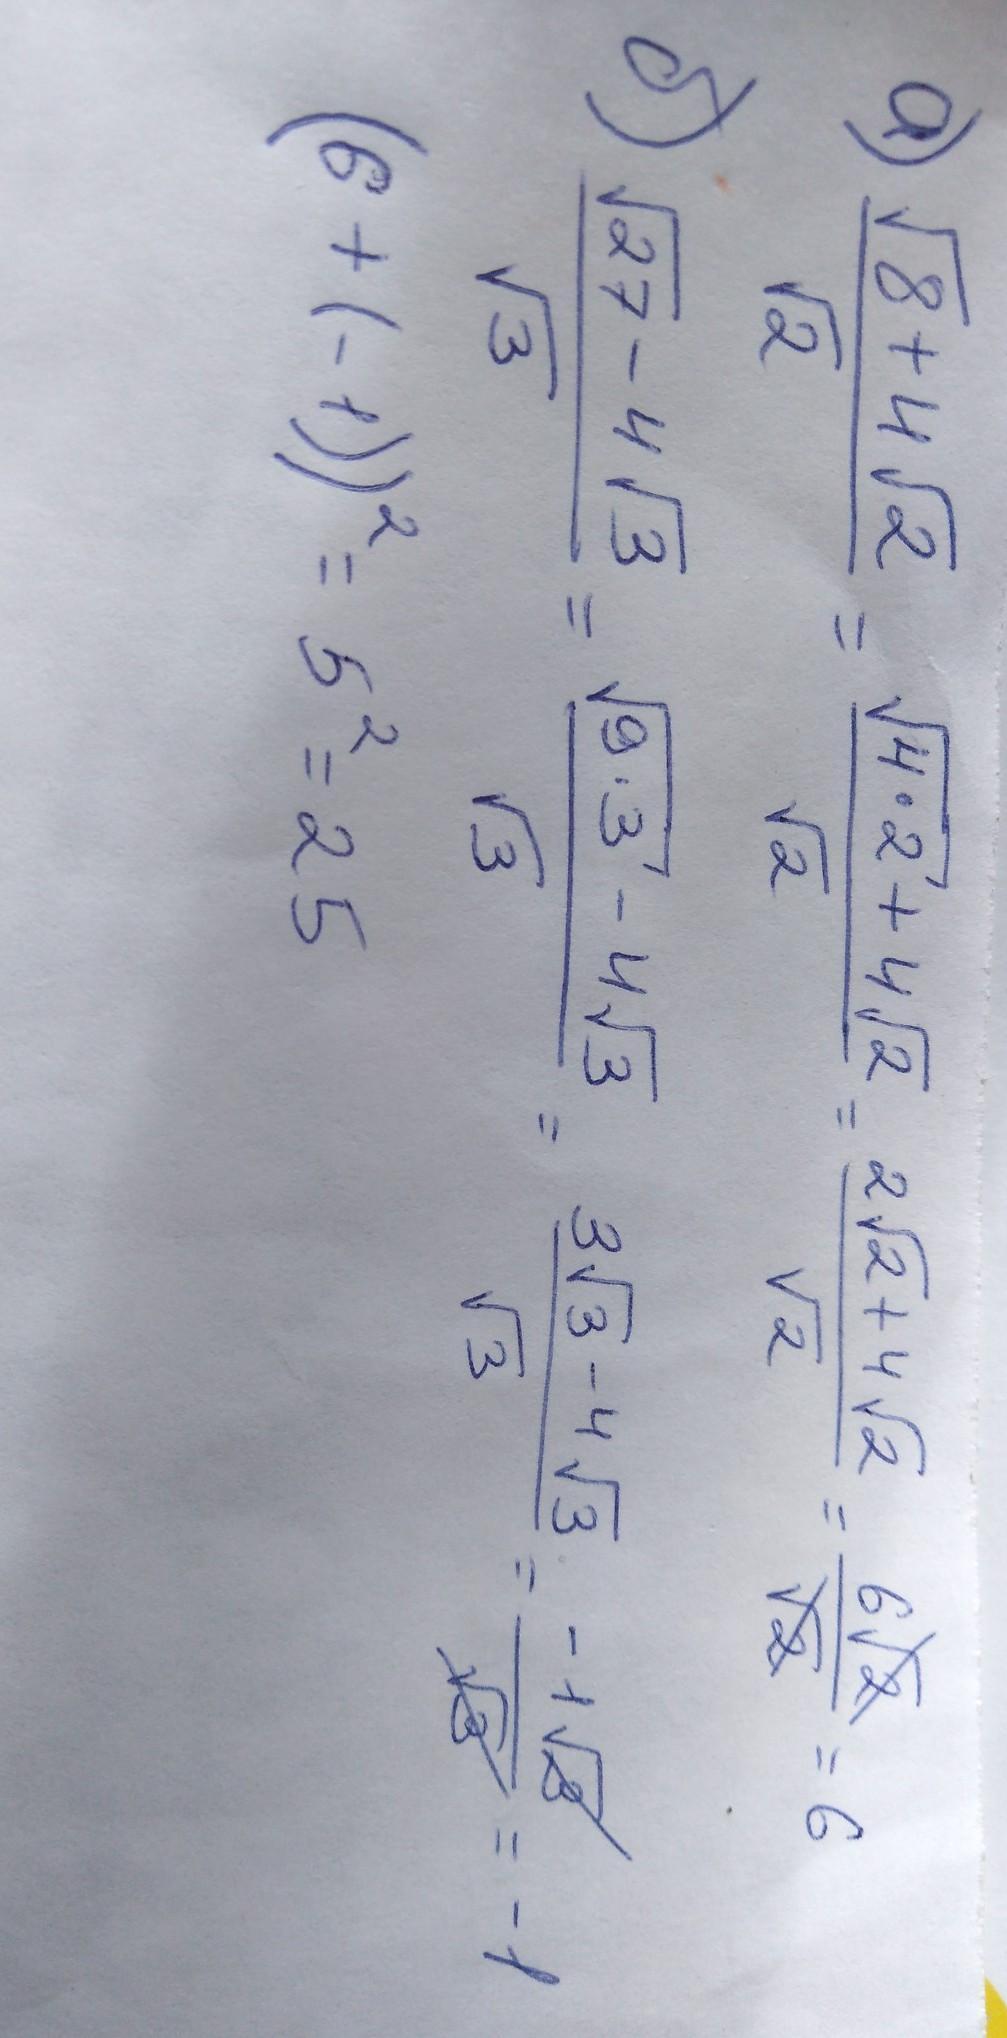 а) (√8 + 4√2)/√2 = (√(4·2) + 4√2)/√2 = (2√2 + 4√2)/√2 = 6√2/√2 = 6
б) (√27 - 4√3)/√3 = (√(9·3) - 4√3)/√3 = (3√3 - 4√3)/√3 = -1√3/√3 = -1
(6 + (-1))² = 5² = 25